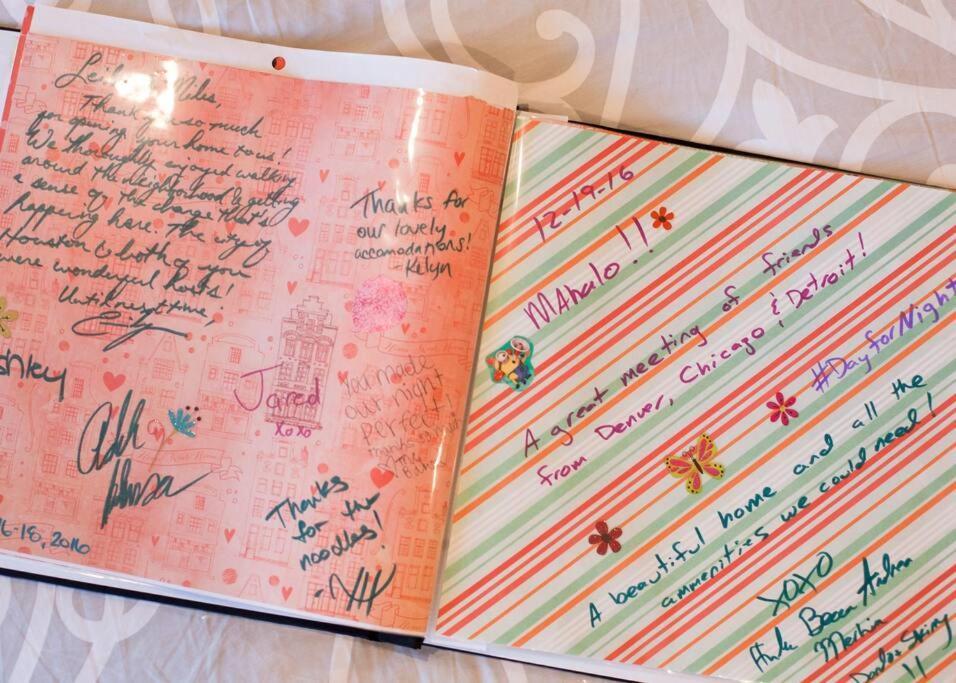 Thank you so much
for opening your home to us!
We thoroughly enjoyed walking
around the neighborhood & getting
a sense of the change that's
happening here. The city of
Houston & both of you
were wonderful hosts!
Until next time,
Thanks for
our lovely
accomodations!
- Kelyn
Jared
XOXO
You made
our night
perfect!
Thanks
for the
noodles!
16-18, 2016
12-19-16
MAhalo!!
A great meeting of friends
from Denver, Chicago & Detroit!
#DayforNight
A beautiful home and all the
ammenities we could need!
XOXO
Becca Andrea